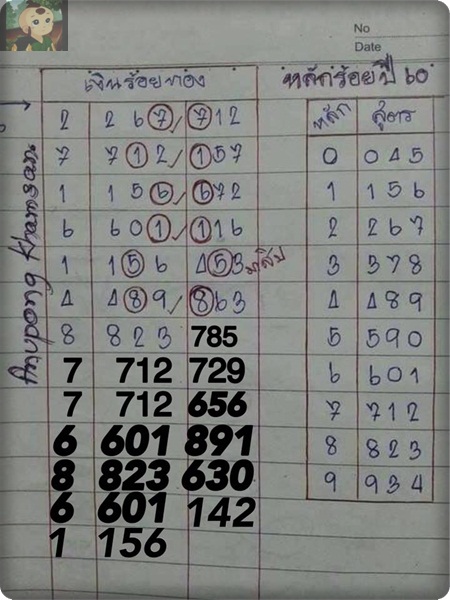 No
Date
เงินร้อยทอง
หลักร้อยปี 60
หลัก สูตร
2 267/712
7 712/157
1 156/672
6 601/116
1 156 453
4 489/863
8 823 785
7 712 729
7 712 656
6 601 891
8 823 630
6 601 142
1 156
0 045
1 156
2 267
3 378
4 489
5 590
6 601
7 712
8 823
9 934